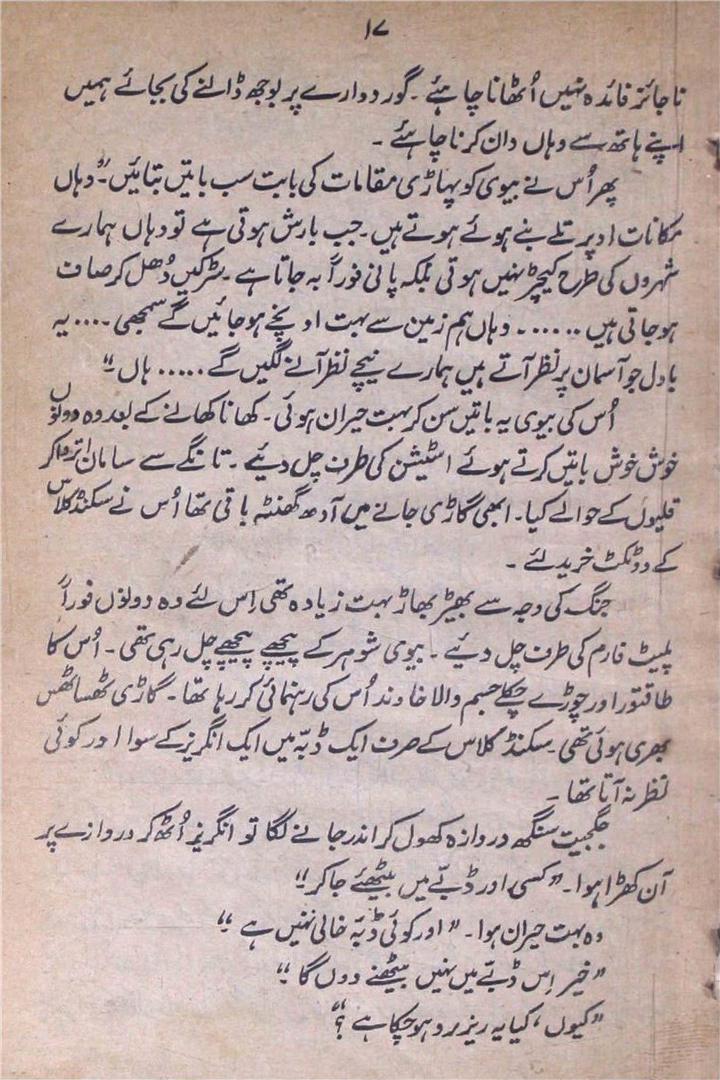 ۱۷
ناجائز فائدہ نہیں اُٹھانا چاہئے ۔ گوردوارے پر بوجھ ڈالنے کی بجائے ہمیں
اپنے ہاتھ سے وہاں دان کرنا چاہئے ۔
پھر اُس نے بیوی کو پہاڑی مقامات کی بابت سب باتیں بتائیں۔ "وہاں
مکانات اوپر تلے بنے ہوئے ہوتے ہیں ۔ جب بارش ہوتی ہے تو وہاں ہمارے
شہروں کی طرح کیچڑ نہیں ہوتی بلکہ پانی فوراً بہ جاتا ہے ۔ سڑکیں دُھل کر صاف
ہو جاتی ہیں ..... ۔ وہاں ہم زمین سے بہت اونچے ہو جائیں گے سمجھی .... یہ
بادل جو آسمان پر نظر آتے ہیں ہمارے نیچے نظر آنے لگیں گے ..... ہاں"
اُس کی بیوی یہ باتیں سن کر بہت حیران ہوئی ۔ کھانا کھانے کے بعد وہ دونوں
خوش خوش باتیں کرتے ہوئے اسٹیشن کی طرف چل دیئے ۔ تانگے سے سامان اتروا کر
قلیوں کے حوالے کیا ۔ ابھی گاڑی جانے میں آدھ گھنٹہ باقی تھا اُس نے سکنڈ کلاس
کے دو ٹکٹ خرید لئے ۔
جنگ کی وجہ سے بھیڑ بھاڑ بہت زیادہ تھی اِس لئے وہ دونوں فوراً
پلیٹ فارم کی طرف چل دیئے ۔ بیوی شوہر کے پیچھے پیچھے چل رہی تھی ۔ اُس کا
طاقتور اور چوڑے چکلے جسم والا خاوند اُس کی رہنمائی کر رہا تھا ۔ گاڑی ٹھساٹھس
بھری ہوئی تھی ۔ سکنڈ کلاس کے صرف ایک ڈبّہ میں ایک انگریز کے سوا اور کوئی
نظر نہ آتا تھا ۔
جگجیت سنگھ دروازہ کھول کر اندر جانے لگا تو انگریز اُٹھ کر دروازے پر
آن کھڑا ہوا ۔ "کسی اور ڈبّے میں بیٹھئے جا کر"
وہ بہت حیران ہوا ۔ "اور کوئی ڈبّہ خالی نہیں ہے"
"خیر اِس ڈبّے میں نہیں بیٹھنے دوں گا"
"کیوں ، کیا یہ ریزرو ہو چکا ہے ؟"